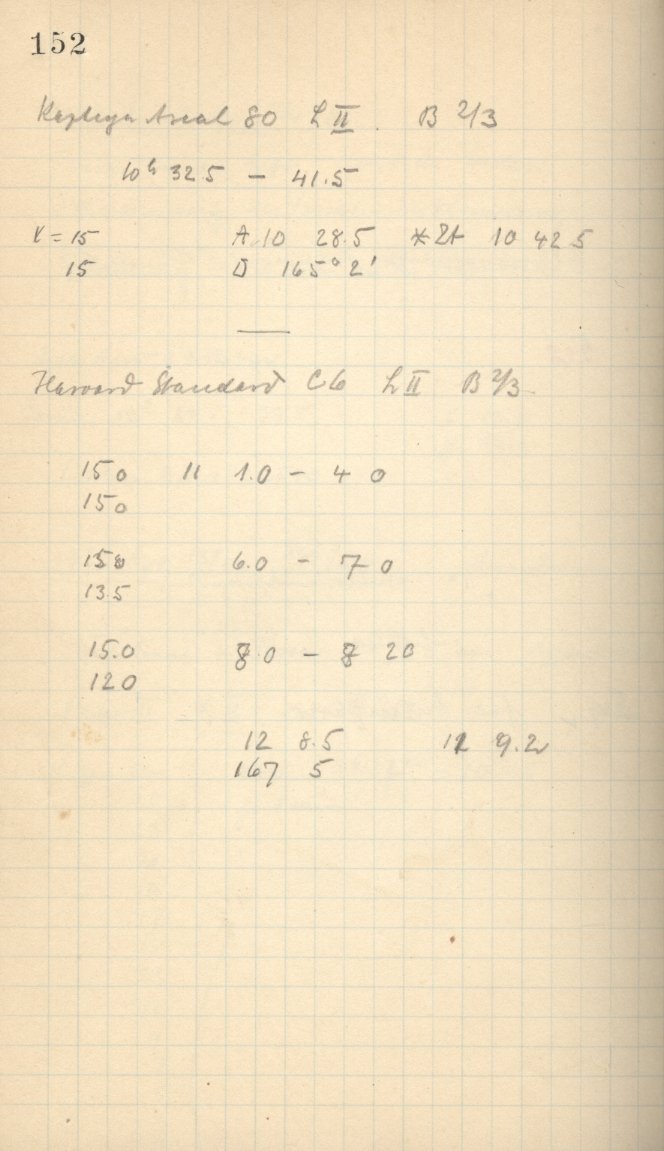 152
Kapteyn Areal 80 L II. B 2/3
10h 32 5 – 41.5
V = 15 A 10 28.5 *Zt 10 42 5
15 D 165° 2'
Harvard Standard C6 L II B 2/3
15 0 11 1.0 – 4 0
15 0
15 0 6.0 – 7 0
13 5
15.0 8 0 – 8 20
12 0
12 8.5 12 9.2
167 5